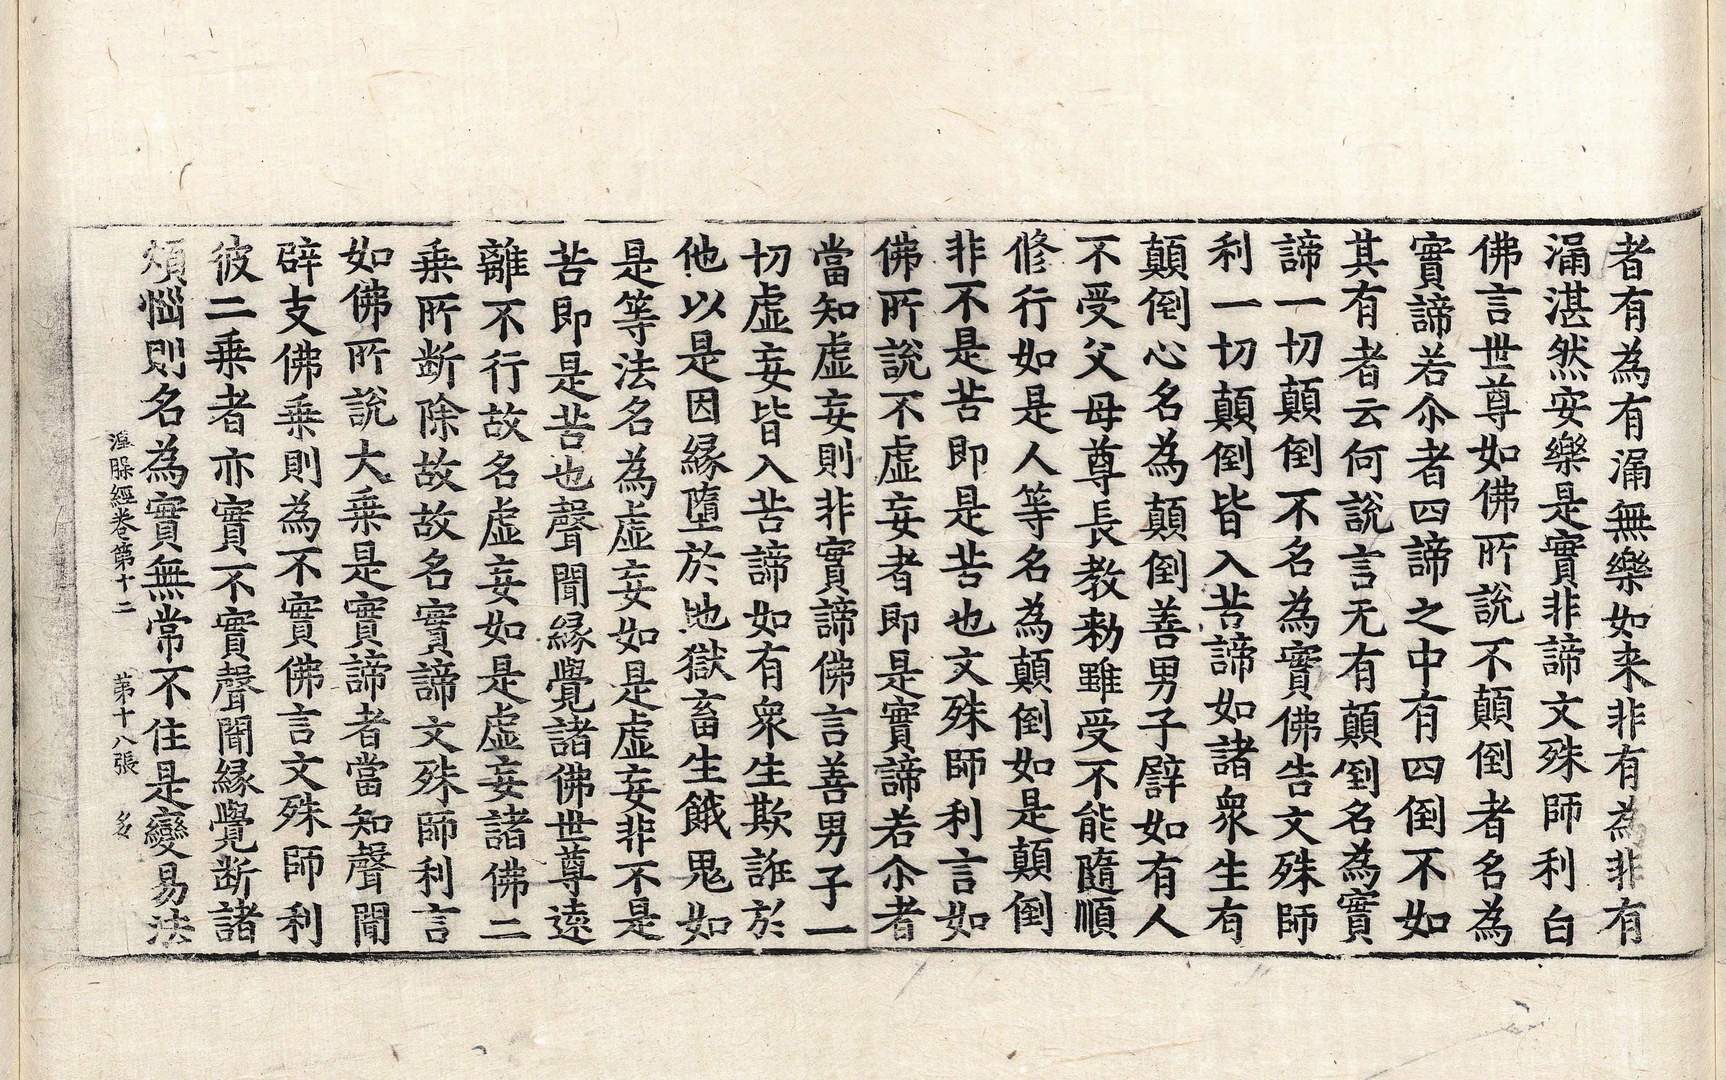 者有為有漏無樂如来非有為非有
漏湛然安樂是實非諦文殊師利白
佛言世尊如佛所說不顛倒者名為
實諦若尒者四諦之中有四倒不如
其有者云何說言无有顛倒名為實
諦一切顛倒不名為實佛告文殊師
利一切顛倒皆入苦諦如諸衆生有
顛倒心名為顛倒善男子譬如有人
不受父母尊長教勑雖受不能隨順
修行如是人等名為顛倒如是顛倒
非不是苦即是苦也文殊師利言如
佛所說不虛妄者即是實諦若尒者
當知虛妄則非實諦佛言善男子一
切虛妄皆入苦諦如有衆生欺誑於
他以是因緣墮於地獄畜生餓鬼如
是等法名為虛妄如是虛妄非不是
苦即是苦也聲聞緣覺諸佛世尊遠
離不行故名虛妄如是虛妄諸佛二
乗所断除故故名實諦文殊師利言
如佛所說大乗是實諦者當知聲聞
辟支佛乗則為不實佛言文殊師利
彼二乗者亦實不實聲聞緣覺断諸
煩惱則名為實無常不住是變易法
涅脲經卷第十二 第十八張 多